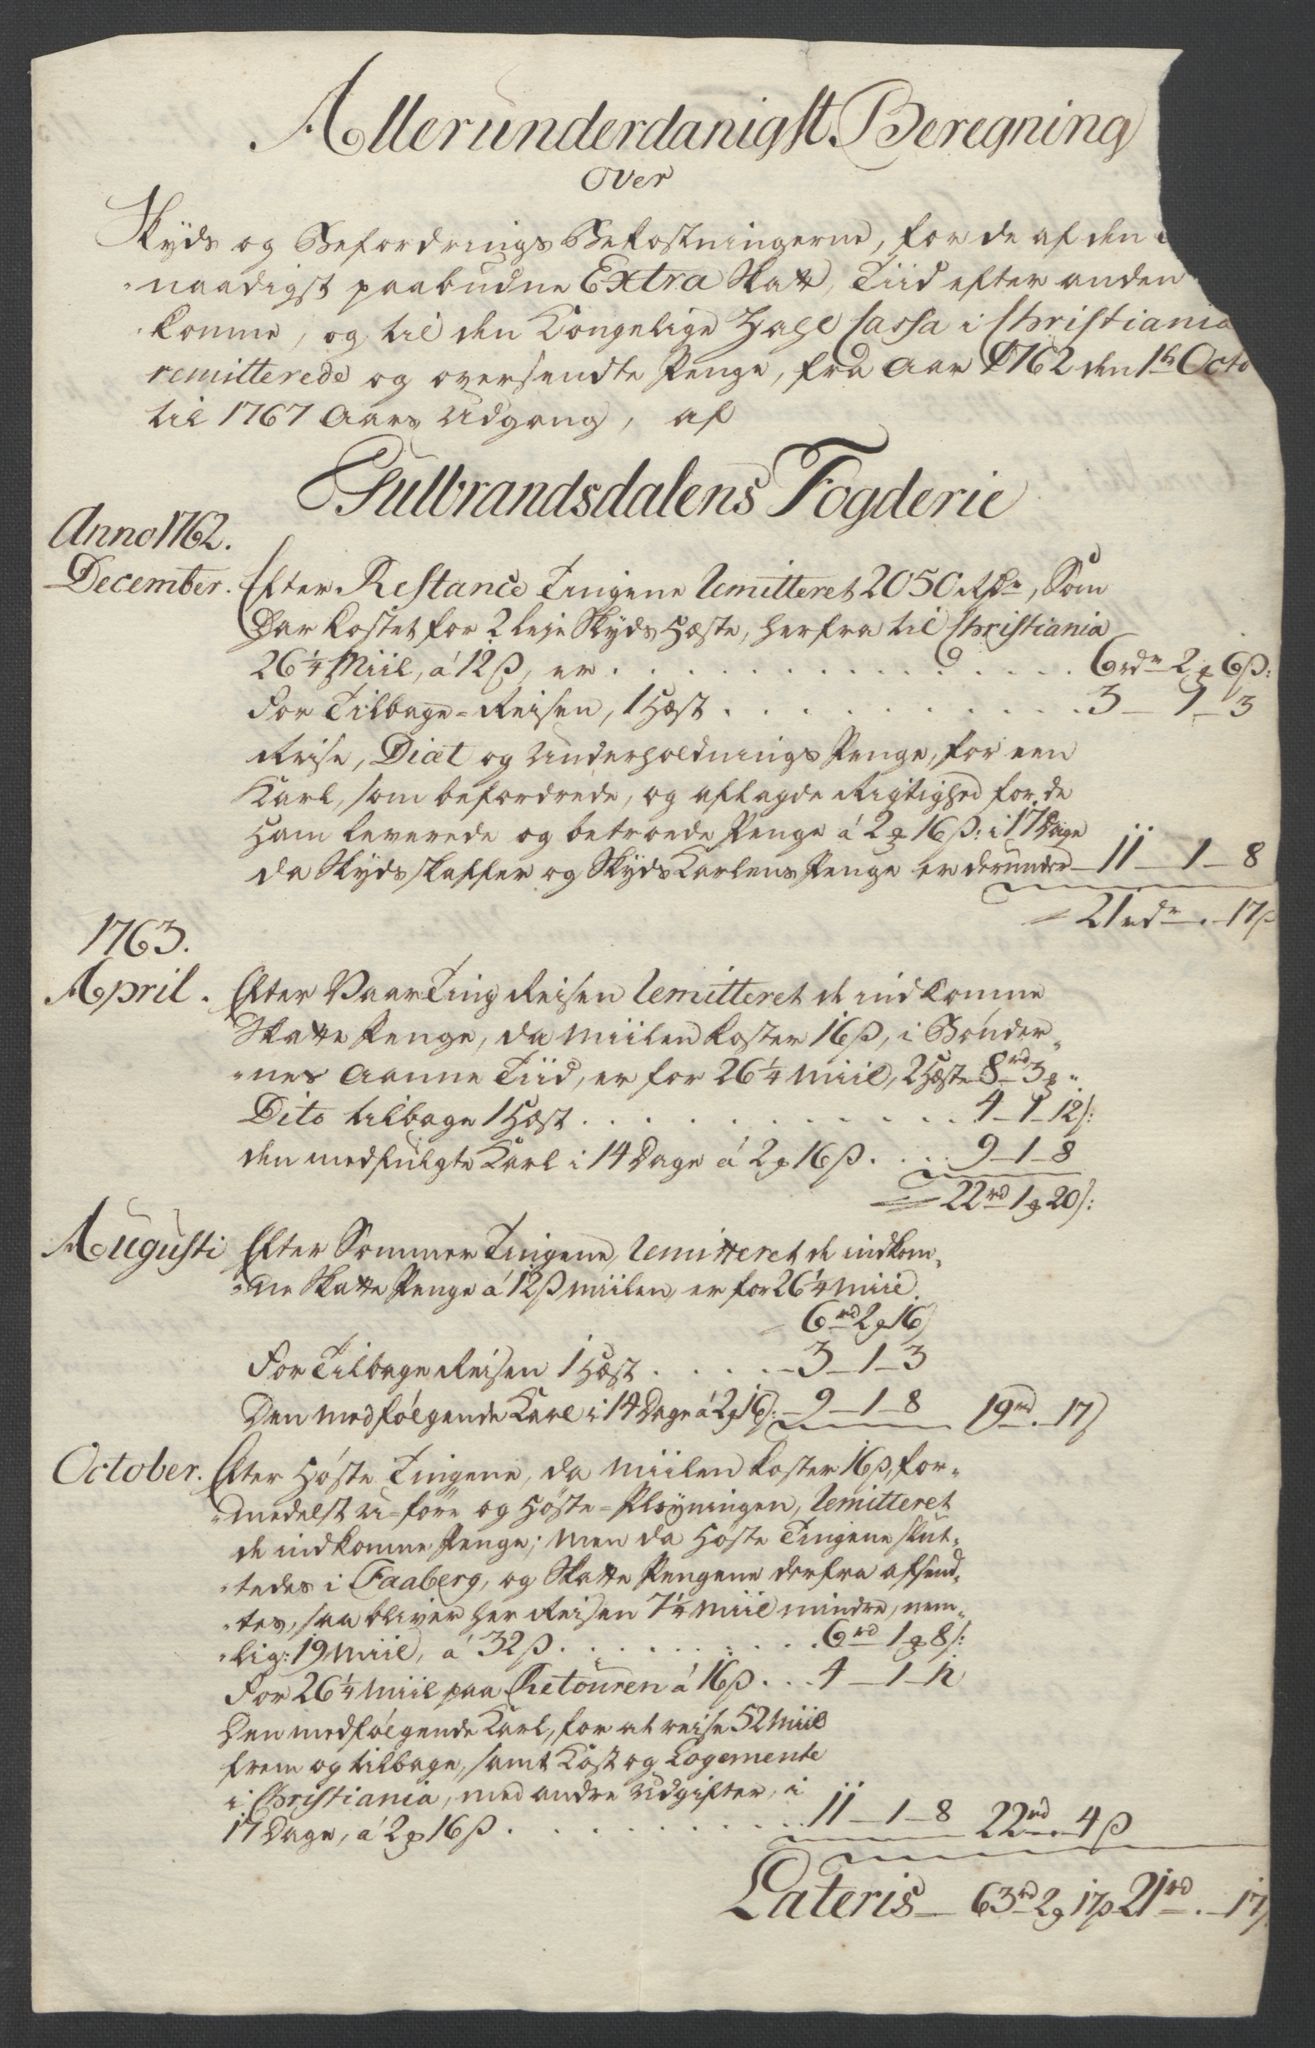 Allerunderdanigst Beregning
over
Skyds og Befordrings Bekostningerne, for de af den
naadigst paabudne Extra Skatt, Tiid efter anden
komne, og til den Kongelige Zahl Cassa i Christiania
remitterede og oversendte Penge, fra Aar 1762 den 1te Octo
til 1767 Aars Udgang, af
Gulbrandsdalens Fogderie
Anno 1762.
December. Efter Restance Tingene remitteret 2050 rdr, Som
har kostet for 2 leje Skyds Hæste, herfra til Christiania
26 1/4 Miil, á 12 ß, er . . . 6 rdr 2 ꝗ 6 ß:
for Tilbage-Reisen, 1 Hæst . . . 3 - 1 - 3
Reise, Diæt og Underholdnings Penge, for een
Karl, som befordrede, og aflagde Rigtighed for de
Ham leverede og betroede Penge á 2 ꝗ 16 ß: i 17 Dage
da Skydsskaffer og Skyds Karlens Penge er derunder 11 - 1 - 8
21 rdr . 17 ß
1763.
April. Efter Vaar Ting Reisen remitteret de indkomne
Skatte Penge, da Miilen koster 16 ß, i Bønder-
nes Aanne Tiid, er for 26 1/4 Miil, 2 Hæste 8 rd 3 ꝗ "
Dito tilbage 1 Hæst . . . 4 - 1 - 12 ß:
den medfulgte Karl i 14 Dage á 2 ꝗ 16 ß . . . 9 - 1 - 8
22 rd 1 ꝗ 20 ß:
Augusti Efter Sommer Tingene, remitteret de indkom-
ne Skatte Penge á 12 ß Miilen, er for 26 1/4 Miil
6 rd 2 ꝗ 16 ß
For Tilbage Reisen 1 Hæst . . . 3 - 1 - 3
Den medfølgende Karl i 14 Dage á 2 ꝗ 16 ß: 9 - 1 - 8 19 rd . 17 ß
October. Efter Høste Tingene, da Miilen koster 16 ß, for-
medelst U-føre og Høste-Pløyningen, remitteret
de indkomne Penge; men da Høste Tingene slut-
tedes i Faaberg, og Skatte Pengene derfra afsend-
tes, saa bliver her Reisen 7 1/4 Miil mindre, nem-
lig: 19 Miil, á 32 ß . . . 6 rd 1 ꝗ 8 ß:
For 26 1/4 Miil paa Retouren á 16 ß . . . 4 - 1 - 12
Den medfølgende Karl, for at reise 52 Miil
frem og tilbage, samt Kost og Logemente
i Christiania, med andre Udgifter, i
17 Dage, á 2 ꝗ 16 ß . . . 11 - 1 - 8 22 rd . 4 ß
Lateris 63 rd 2 ꝗ 17 ß 21 rd . 17 ß